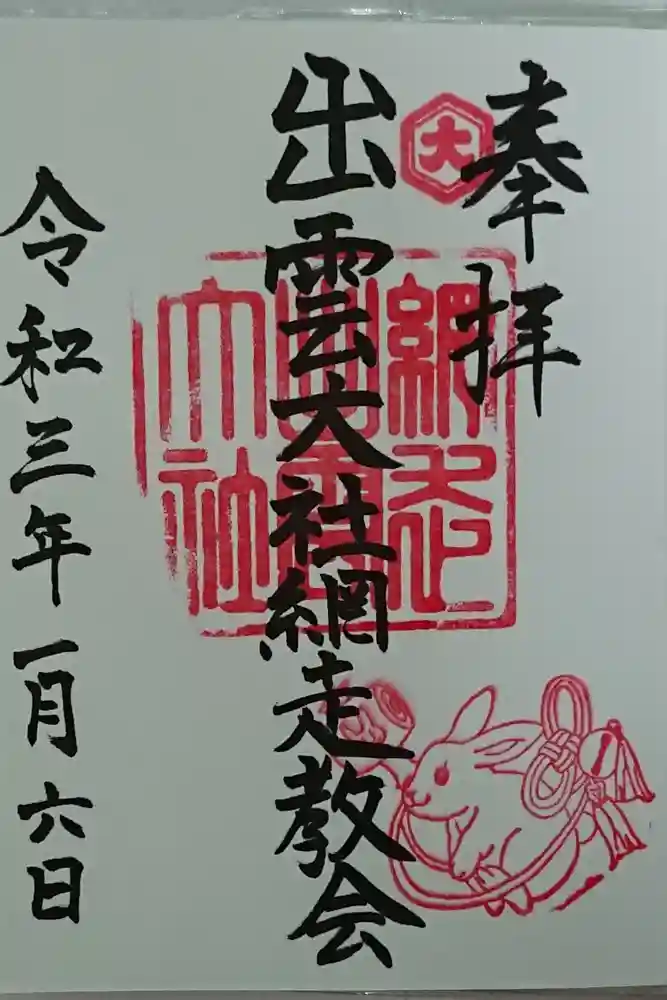 奉拝
大
出雲大社網走教会
網走
出雲
大社
令和三年一月六日